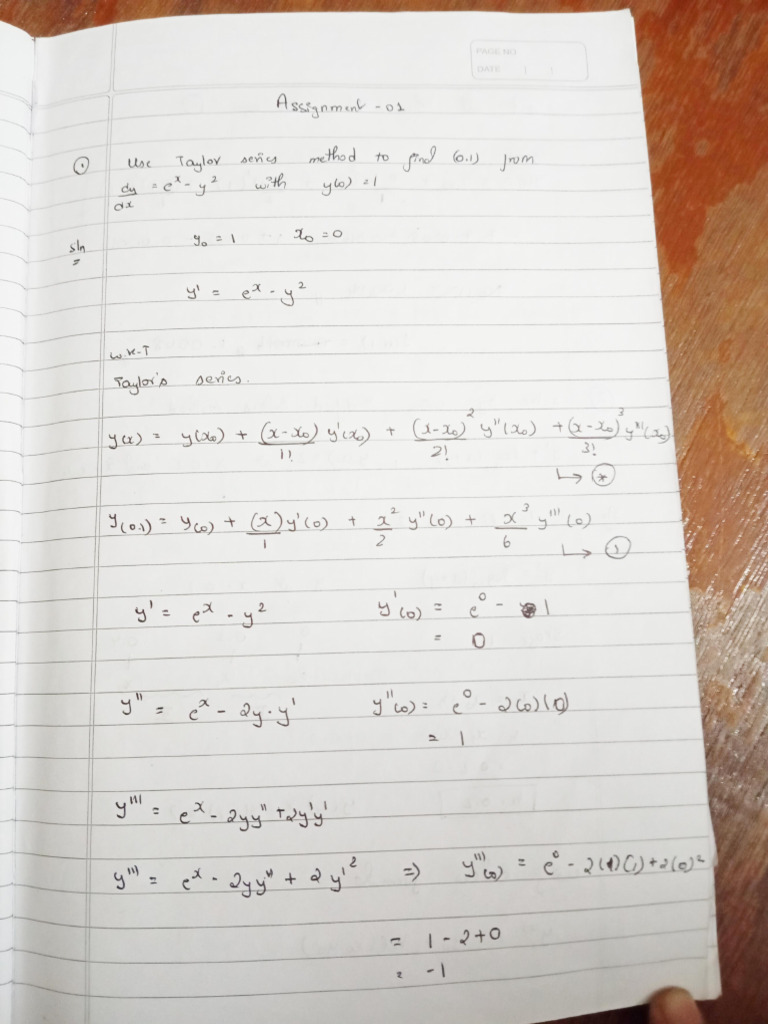 PAGE NO
DATE / /
Assignment - 01
① Use Taylor series method to find (0.1) from
dy/dx = e^x - y^2 with y(0) = 1
sln = y₀ = 1 x₀ = 0
y' = e^x - y^2
W.K.T
Taylor's series.
y(x) = y(x₀) + (x-x₀)/1! y'(x₀) + (x-x₀)^2/2! y''(x₀) + (x-x₀)^3/3! y'''(x₀)
↳ ⊛
y(0.1) = y(0) + (x)/1 y'(0) + x^2/2 y''(0) + x^3/6 y'''(0)
↳ ①
y' = e^x - y^2 y'(0) = e^0 - 1
= 0
y'' = e^x - 2y·y' y''(0) = e^0 - 2(0)(0)
= 1
y''' = e^x - 2yy'' + 2y'y'
y''' = e^x - 2yy'' + 2y'^2 ⇒ y'''(0) = e^0 - 2(1)(1) + 2(0)^2
= 1 - 2 + 0
= -1